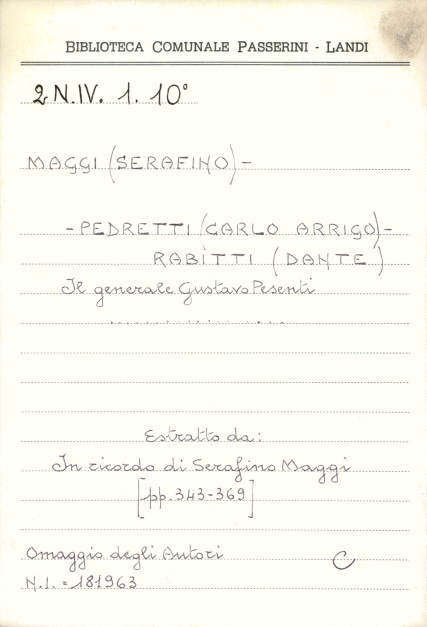 BIBLIOTECA COMUNALE PASSERINI - LANDI
2 N.IV. 1. 10°
MAGGI (SERAFINO) -
- PEDRETTI (CARLO ARRIGO) -
RABÌTTI (DANTE)
Il generale Gustavo Pesenti
Estratto da:
In ricordo di Serafino Maggi
[pp. 343-369]
Omaggio degli Autori C
N.I. = 181963